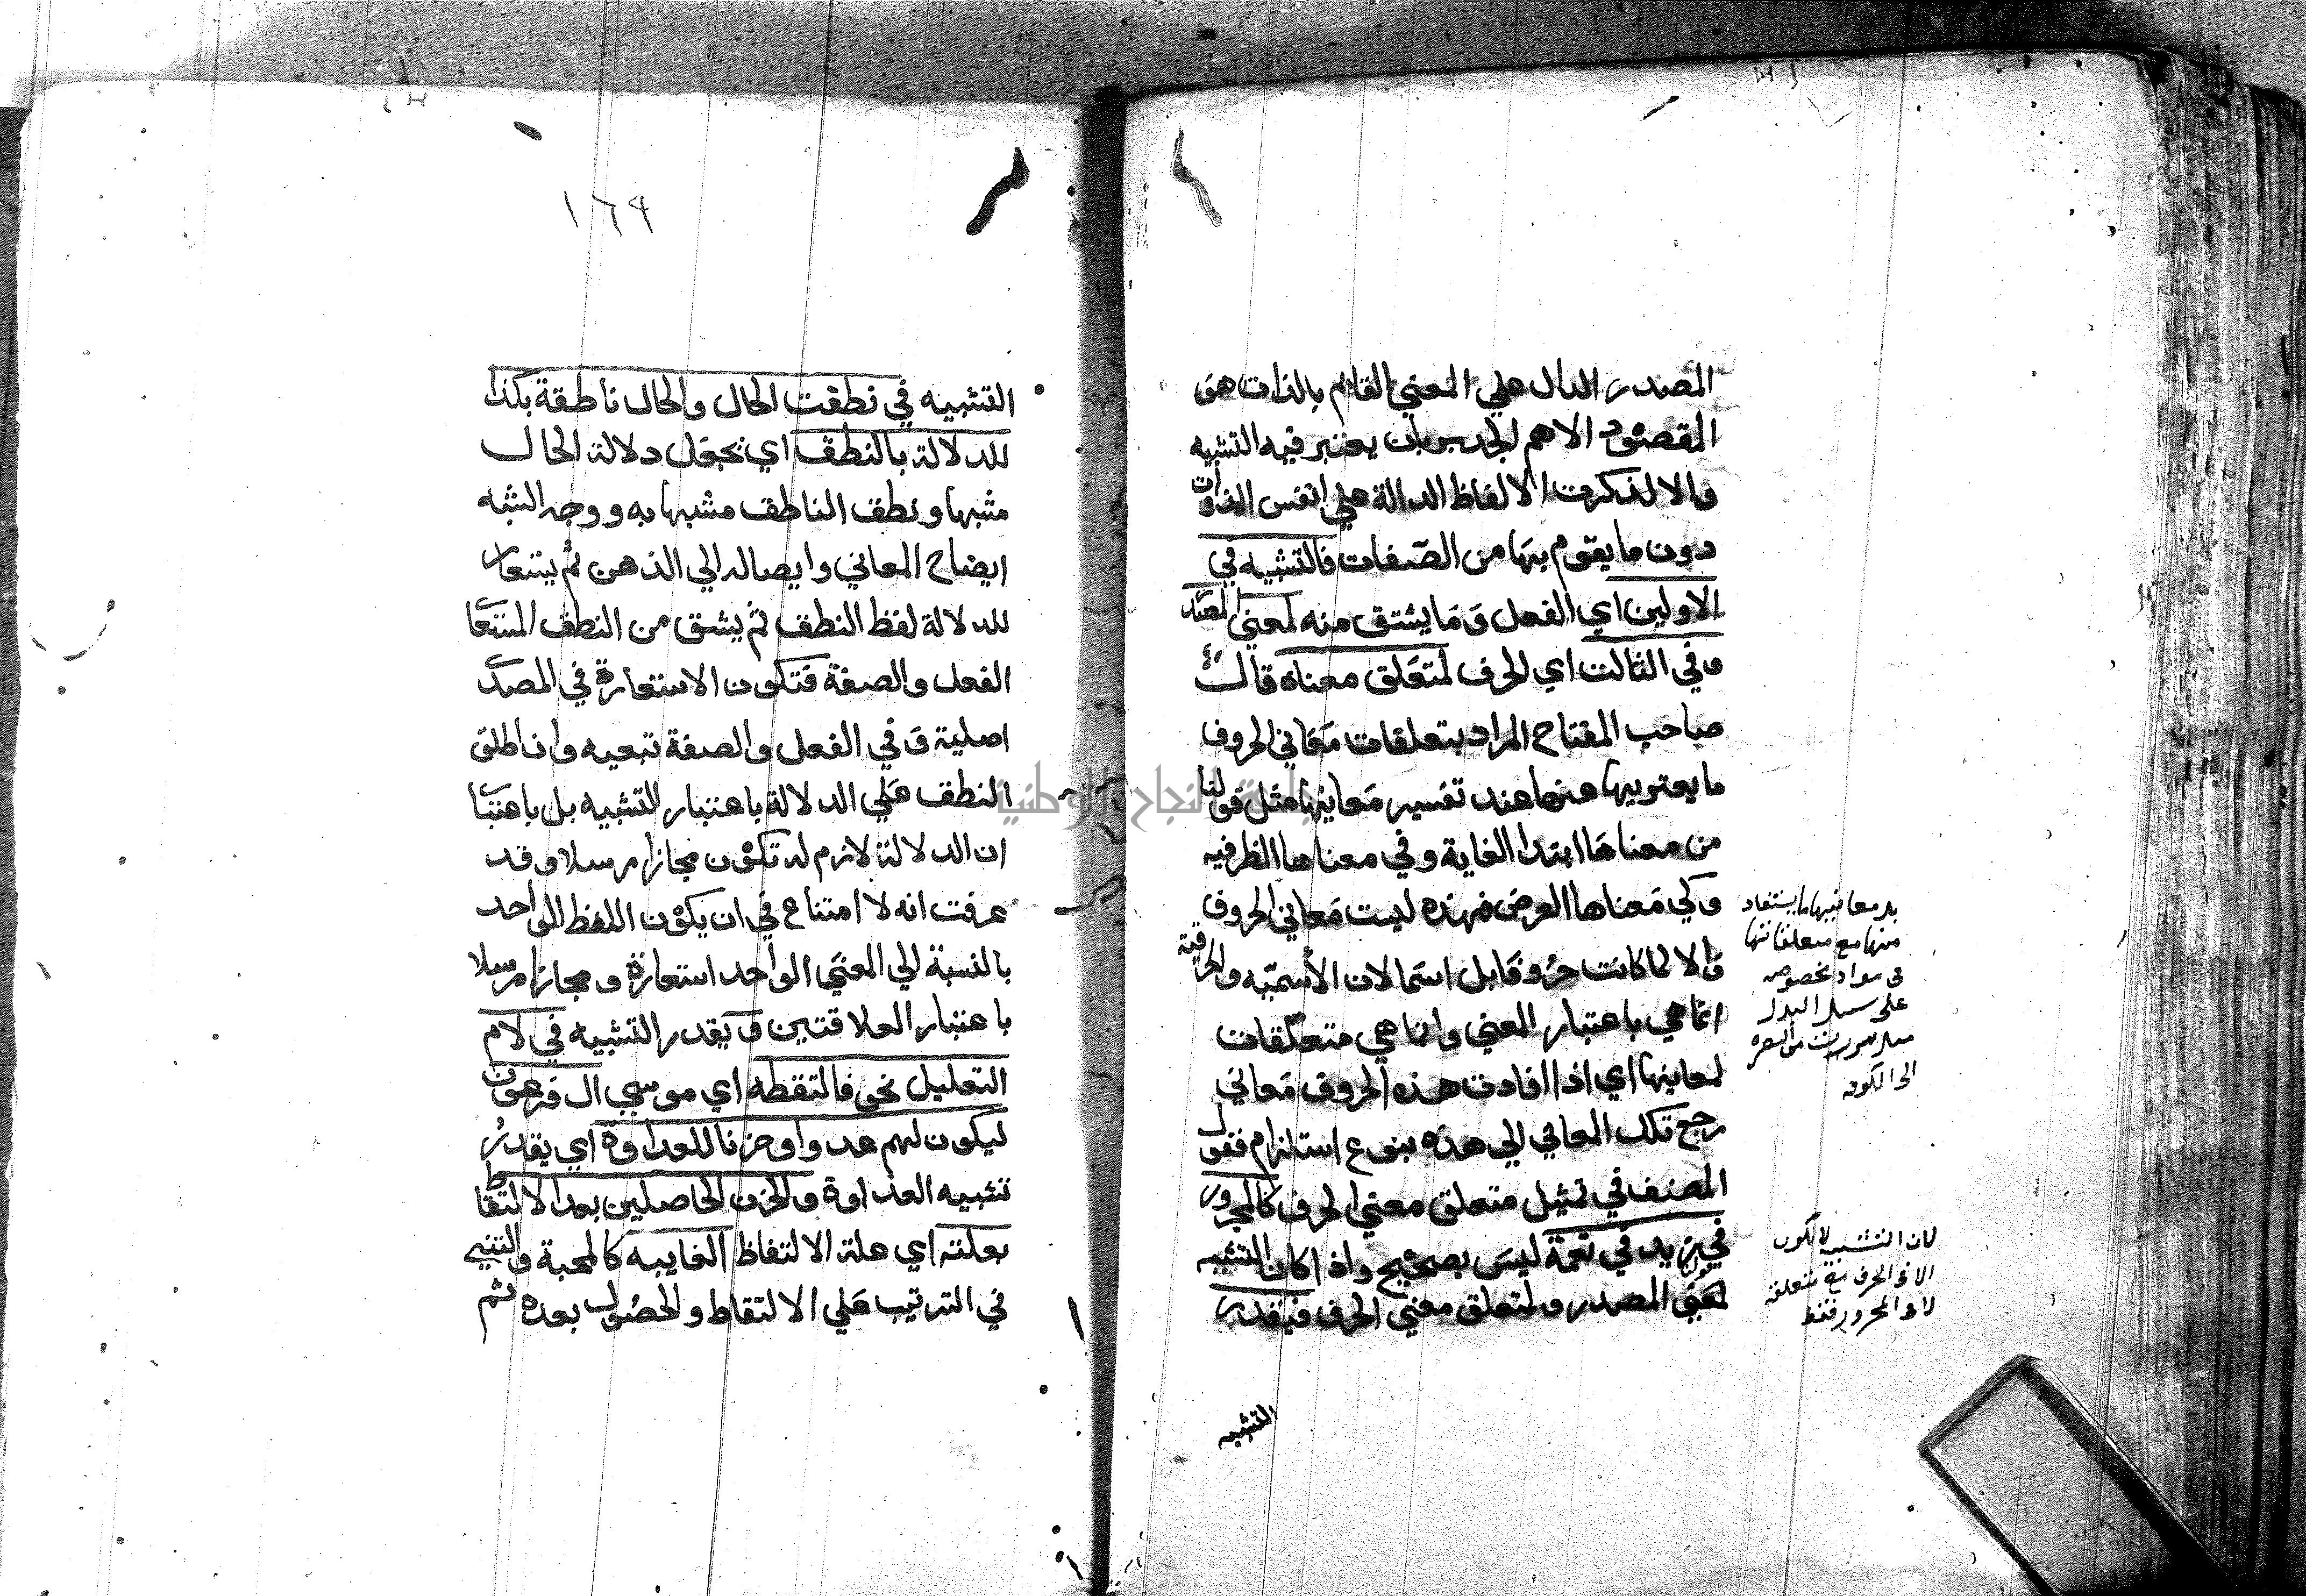 المصدر الدال علي المعني القائم بالذات هو
المقصود الاهم الجدير بان يعتبر فيه التشبيه
والا لذكرت الالفاظ الدالة علي انفس الذوات
دون ما يقوم بها من الصفات فالتشبيه في
الاولين اي الفعل وما يشتق منه لمعني المصدر
وفي الثالث اي الحرف لمتعلق معناه قال
صاحب المفتاح المراد بتعلقات معاني الحروف
ما يعتر بها عنها عند تفسير معانيها مثل قولنا
من معناها ابتدا الغاية وفي معناها الظرفيه
وكي معناها الغرض فهذه ليست معاني الحروف
والا لما كانت حروفا بل اسما لان الأسميّه والحرفية
انما هي باعتبار المعني وانما هي متعلّقات
لمعانيها اي اذا افادت هذه الحروف معاني
رجع تلك المعاني الي هذه بنوع استلزام فقول
المصنف في تمثيل متعلق معني الحرف كالمجرور
في زيد في نعمة ليس بصحيح واذا كان التشبيه
لمعني المصدر ولمتعلق معني الحرف فيقدر
التشبيه
بل معانيها ما يستفاد
منها مع متعلقاتها
في مواد مخصوصه
على سبيل البدل
من البصره
الى الكوفه
لان التشبيه لا يكون
الا في الحرف مع متعلقه
لا في المجرور فقط
١٦٩
التشبيه في نطقت الحال والحال ناطقة بكذا
للدلالة بالنطق اي يجعل دلالة الحال
مشبها ونطق الناطق مشبها به ووجه الشبه
ايضاح المعاني وايصاله الي الذهن ثم يستعار
للدلالة لفظ النطق ثم يشتق من النطق المستعا
الفعل والصفة فتكون الاستعارة في المصدر
اصلية وفي الفعل والصفة تبعيه وان اطلق
النطق علي الدلالة باعتبار التشبيه بل باعتبا
ان الدلالة لازم له تكون مجازا مرسلا وقد
عرفت انه لا امتناع في ان يكون اللفظ الواحد
بالنسبة الي المعني الواحد استعارة ومجازا مرسلا
باعتبار العلاقتين ويقدر التشبيه في لام
التعليل نحو فالتقطه اي موسي ال فرعون
ليكون لهم عدوا وحزنا للعداوة اي يقدر
تشبيه العداوة والحزن الحاصلين بعد الالتقاط
بعلته اي علة الالتقاط الغايبه كالمحبة والتبني
في الترتيب علي الالتقاط والحصول بعده ثم